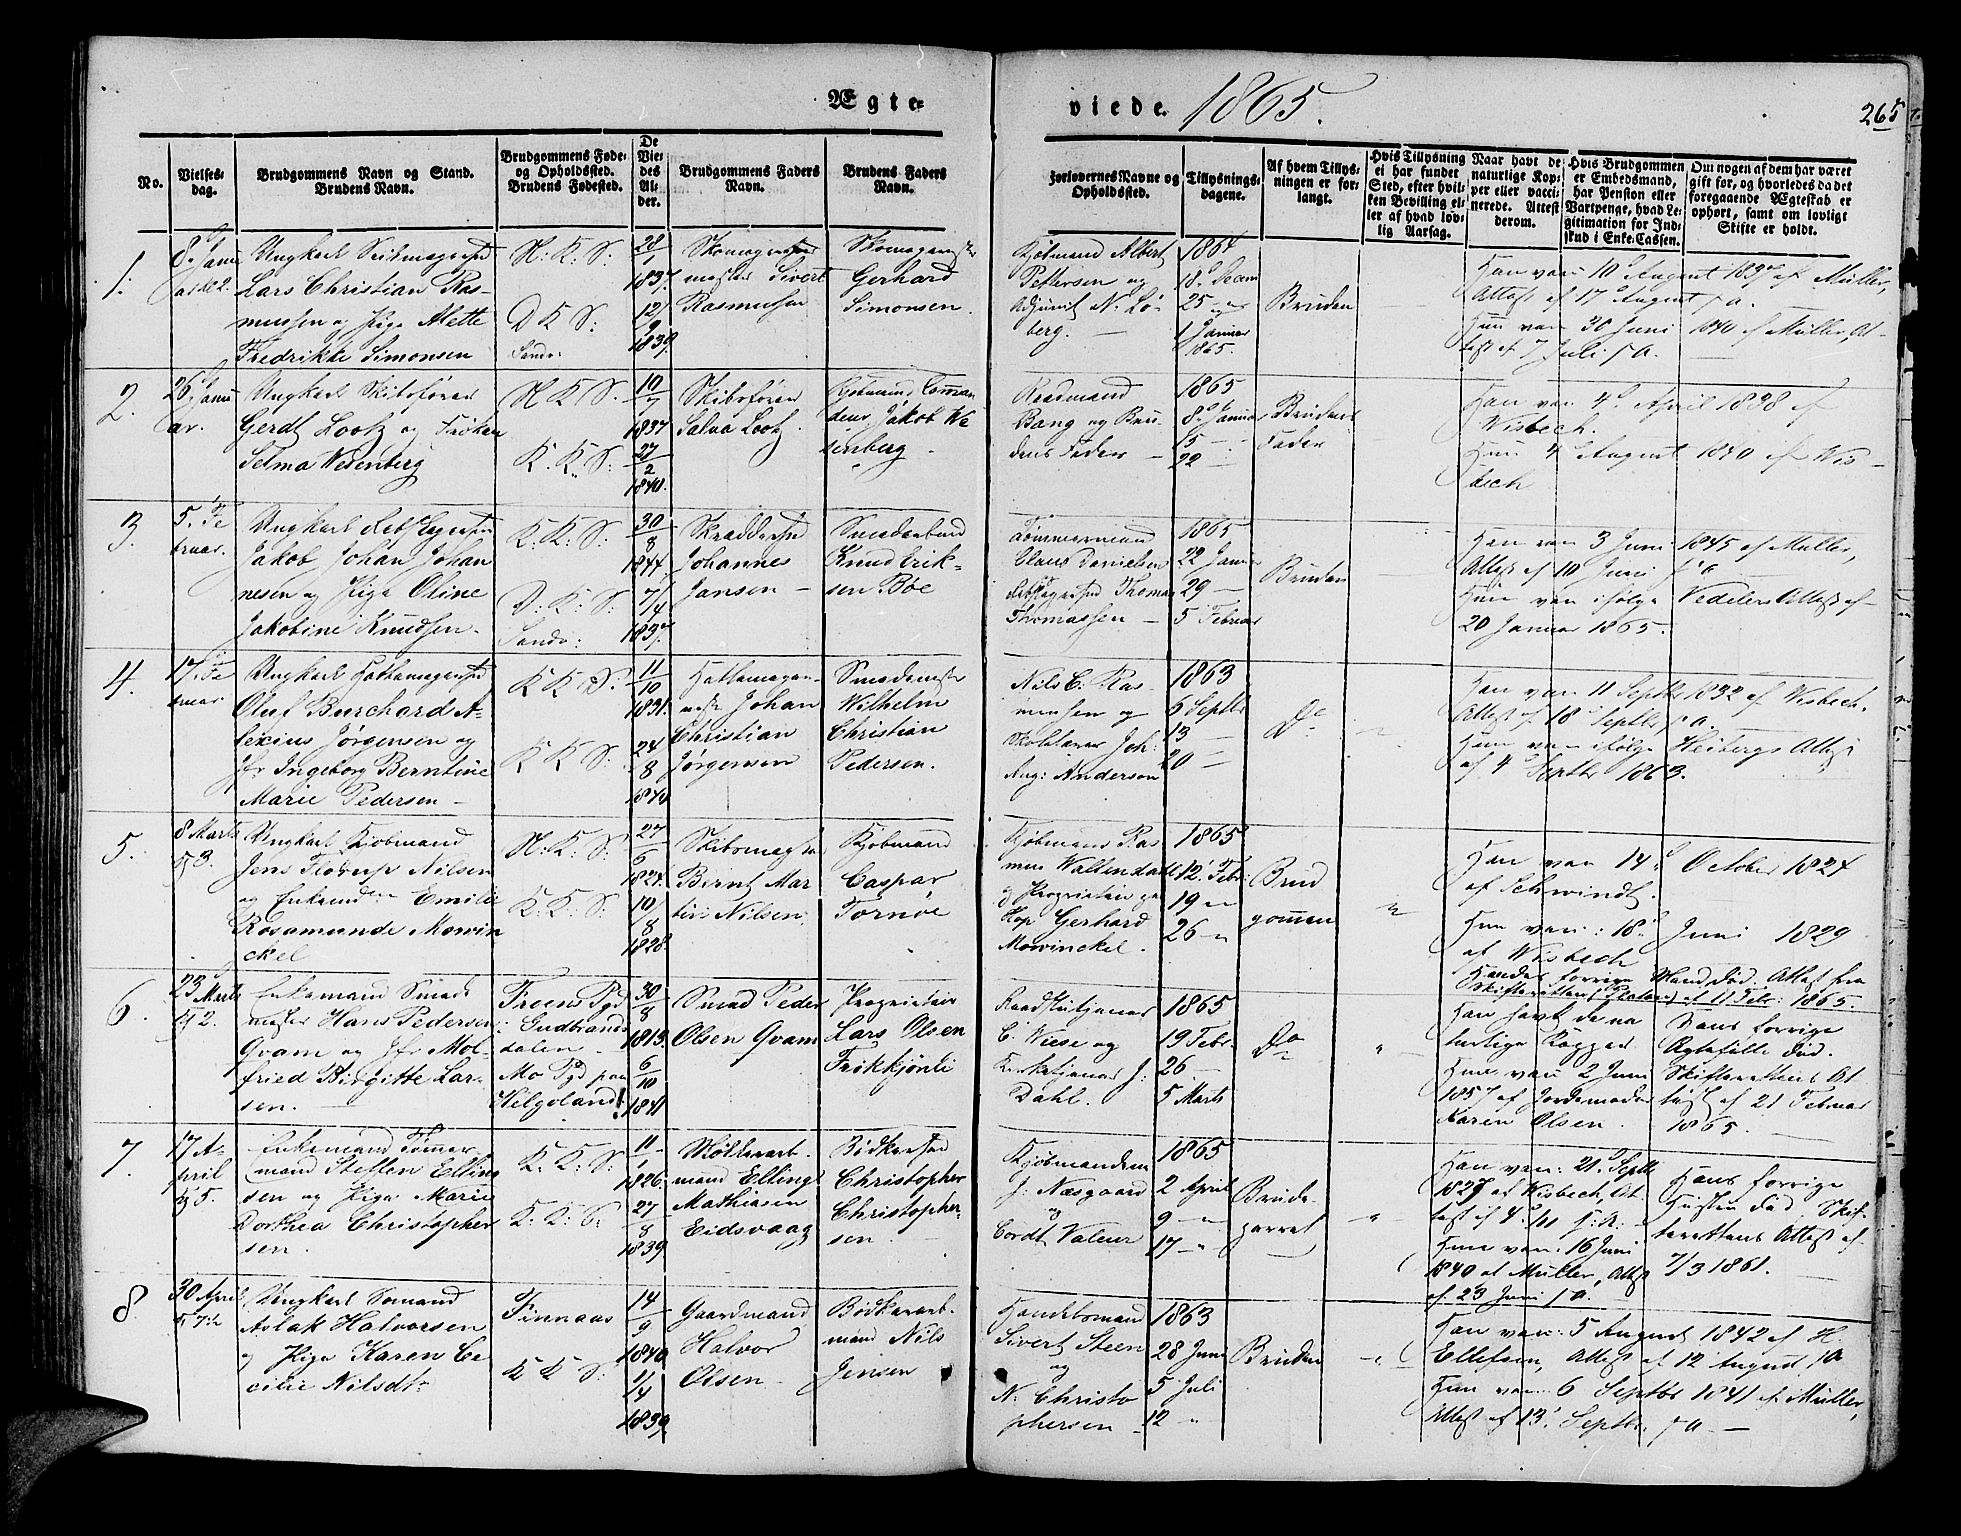 Ægte-
viede. 1865.
265
No.
Vielses-
dag.
Brudgommens Navn og Stand.
Brudens Navn.
Brudgommens Føde-
og Opholdssted.
Brudens Fødested.
De
Vie-
des
Al-
der.
Brudgommens Faders
Navn.
Brudens Faders
Navn.
Forlovernes Navne og
Opholdssted.
Tillysnings-
dagene.
Af hvem Tillys-
ningen er for-
langt.
Hvis Tillysning
ei har funder
Sted, efter hvil-
ken Bevilling el-
ler af hvad lov-
lig Aarsag.
Naar havt de
naturlige Kop-
per eller vacci-
nerede. Attest
derom.
Hvis Brudgommen
er Embedsmand,
har Pension eller
Vartpenge, hvad Le-
gitimation for Ind-
skud i Enke-Cassen.
Om nogen af dem har været
gift før, og hvorledes da det
foregaaende Ægteskab er
ophørt, samt om lovligt
Skifte er holdt.
1.
8. Janu
Lars Christian Ras-
mussen og Pige Alette
Fredrikke Simonsen
N: K: S:
D K S:
Sandv:
28/1
1837.
12/9
1839.
Sivert
Rasmussen
Gerhard
Simonsen.
Kjøbmand Albert
Pettersen og
Adjunct N. Lø-
berg. —
1864
18. Decem
25 — "
1 Januar
1865.
Bruden
Han vac: 10 August 1837 af Müller,
Attest af 17 August s. a.
Hun vac 30 Juni 1840 af Müller, At-
test af 7 Juli s. a. —
2.
26. Janu
ar.
Ungkarl Skibsfører
Gerdt Lootz og Frøken
Selma Wesenberg
N. K. S.
K. K. S:
10/7
1837
27/2
1840.
Skibsfører
Lootz.
Jakob We
senberg —
Raadmand
Bang og Bru-
dens Fader —
1865
8. Januar
15 — "
22 —
Brudens
Fader
Han vac 4 April 1838 af
Wisbech.
Hun 4 August 1840 af Wis-
bech
3.
5. Fe
bruar.
Jakob Johan Johan
nesen og Pige Oline
Jakobine Knudsen.
K: K: S:
D: K: S:
Sandv:
30/8
1844
7/4
1837.
Johannes
Jansen —
Knud Erik-
sen Bøe
Tømmermand
Claus Danielsen
Thomas
Thomassen —
1865
22 Januar
29 —
5 Februar
Bruden
Han vac 3 Juni 1845 af Müller,
Attest af 10 Juni s. a
Hun vac ifølge Vedelers Attest af
20 Januar 1865.
4.
17. Fe
bruar
Oluf Burchard A-
lexius Jørgensen og
Jfr Ingeborg Berntine
Marie Pedersen —
K K: S:
K K S:
11/10
1831.
24/8
1840
Johan
Christian
Jørgensen
Wilhelm
Christian
Pedersen.
Nils C. Ras-
mussen og
Skolelærer Joh:
Aug: Anderson
1863
6 Septbr
13 —
20 —
Do
"
Han vac 11 Septbr 1832 af Wisbech.
Attest af 18 Septbr s. a.
Hun vac ifølge Heibergs Attest
af 4 Septbr 1863.
5.
8 Marts
Ungkarl Kjøbmand
Jens Nilsen
og Enke Emilie
Rosamunde Mowin
ckel
N: K: S:
K: K: S:
27/6
1824.
10/8
1828.
Bernt Mar
tin Nilsen
Kjøbmand
Caspar
Tornøe
Kjøbmand Ras
mus Waltendahl
og Proprietair
Gerhard
Mowinckel.
1865
12. Febr:
19 — "
26 — "
Brud
gommen
"
Han vac 14. October 1824
af Schwindt.
Hun vac: 18. Juni 1829
af Wisbech
Hendes forrige Mand død. Attest fra
Skifteretten af 11 Febr: 1865.
6.
23 Marts
Enkemand Smede
mester Hans Pedersen
Qvam og Jfr Mol-
fried Birgitte Lar-
sen. —
Froens Pgd
i Gudbrands
dalen —
Mo Pgd paa
Helgeland!
30/8
1813.
6/10
1841
Smed Peder
Olsen Qvam
Proprietair
Lars Olsen
Frikkjønli
C. Wiese og
Kirketjener J:
Dahl.
1865
19 Febr.
26 —
5 Marts
Do
"
Han havt de na
turlige Kopper
Hun vac: 2 Juni
1857 af Jordemoder
Karen Olsen.
Hans forrige
Ægtefælle død.
Skifterettens At
test af 21 Februar
1865.
7.
17 A-
pril
Enkemand Tømmer
mand Steffen Elling
sen og Pige Marie
Dorthea Christopher
sen.
K: K: S:
K: K: S:
11/1
1826.
27/8
1839
Møllerarb
mand Elling
Mathiasen
Eidsvaag
Christopher
Christopher-
sen.
Kjøbmændene
J. Næsgaard
og
Cordt Valeur
1865
2 April
9 — "
17 — "
Brude-
parret
"
Han vac: 21. Septbr
1827 af Wisbech, At
test af 4
Hun vac: 16 Juni
1840 af Müller, Attest
af 23 Juni s. a.
Hans forrige
Hustru død, Skif-
terettens Attest af
7/3 1861.
8
30 April
Ungkarl Sømand
Aslak Halvorsen
og Pige Karen Ce
cilie Nilsdtr
Finnaas
K K S:
14/9
1840.
11/4
1839.
Gaardmand
Halvor
Olsen —
Bødkerarb-
mand Nils
Jensen
Handelsmand
Sivert Steen
og
N. Christo
phersen
1863
28 Juni
5 Juli
12 "
Bruden
"
Han vac: 5 August 1842 af H.
Ellefsen, Attest af 12 August s. a
Hun vac: 6 Septbr 1841 af Müller,
Attest af 13 Septbr s. a. —